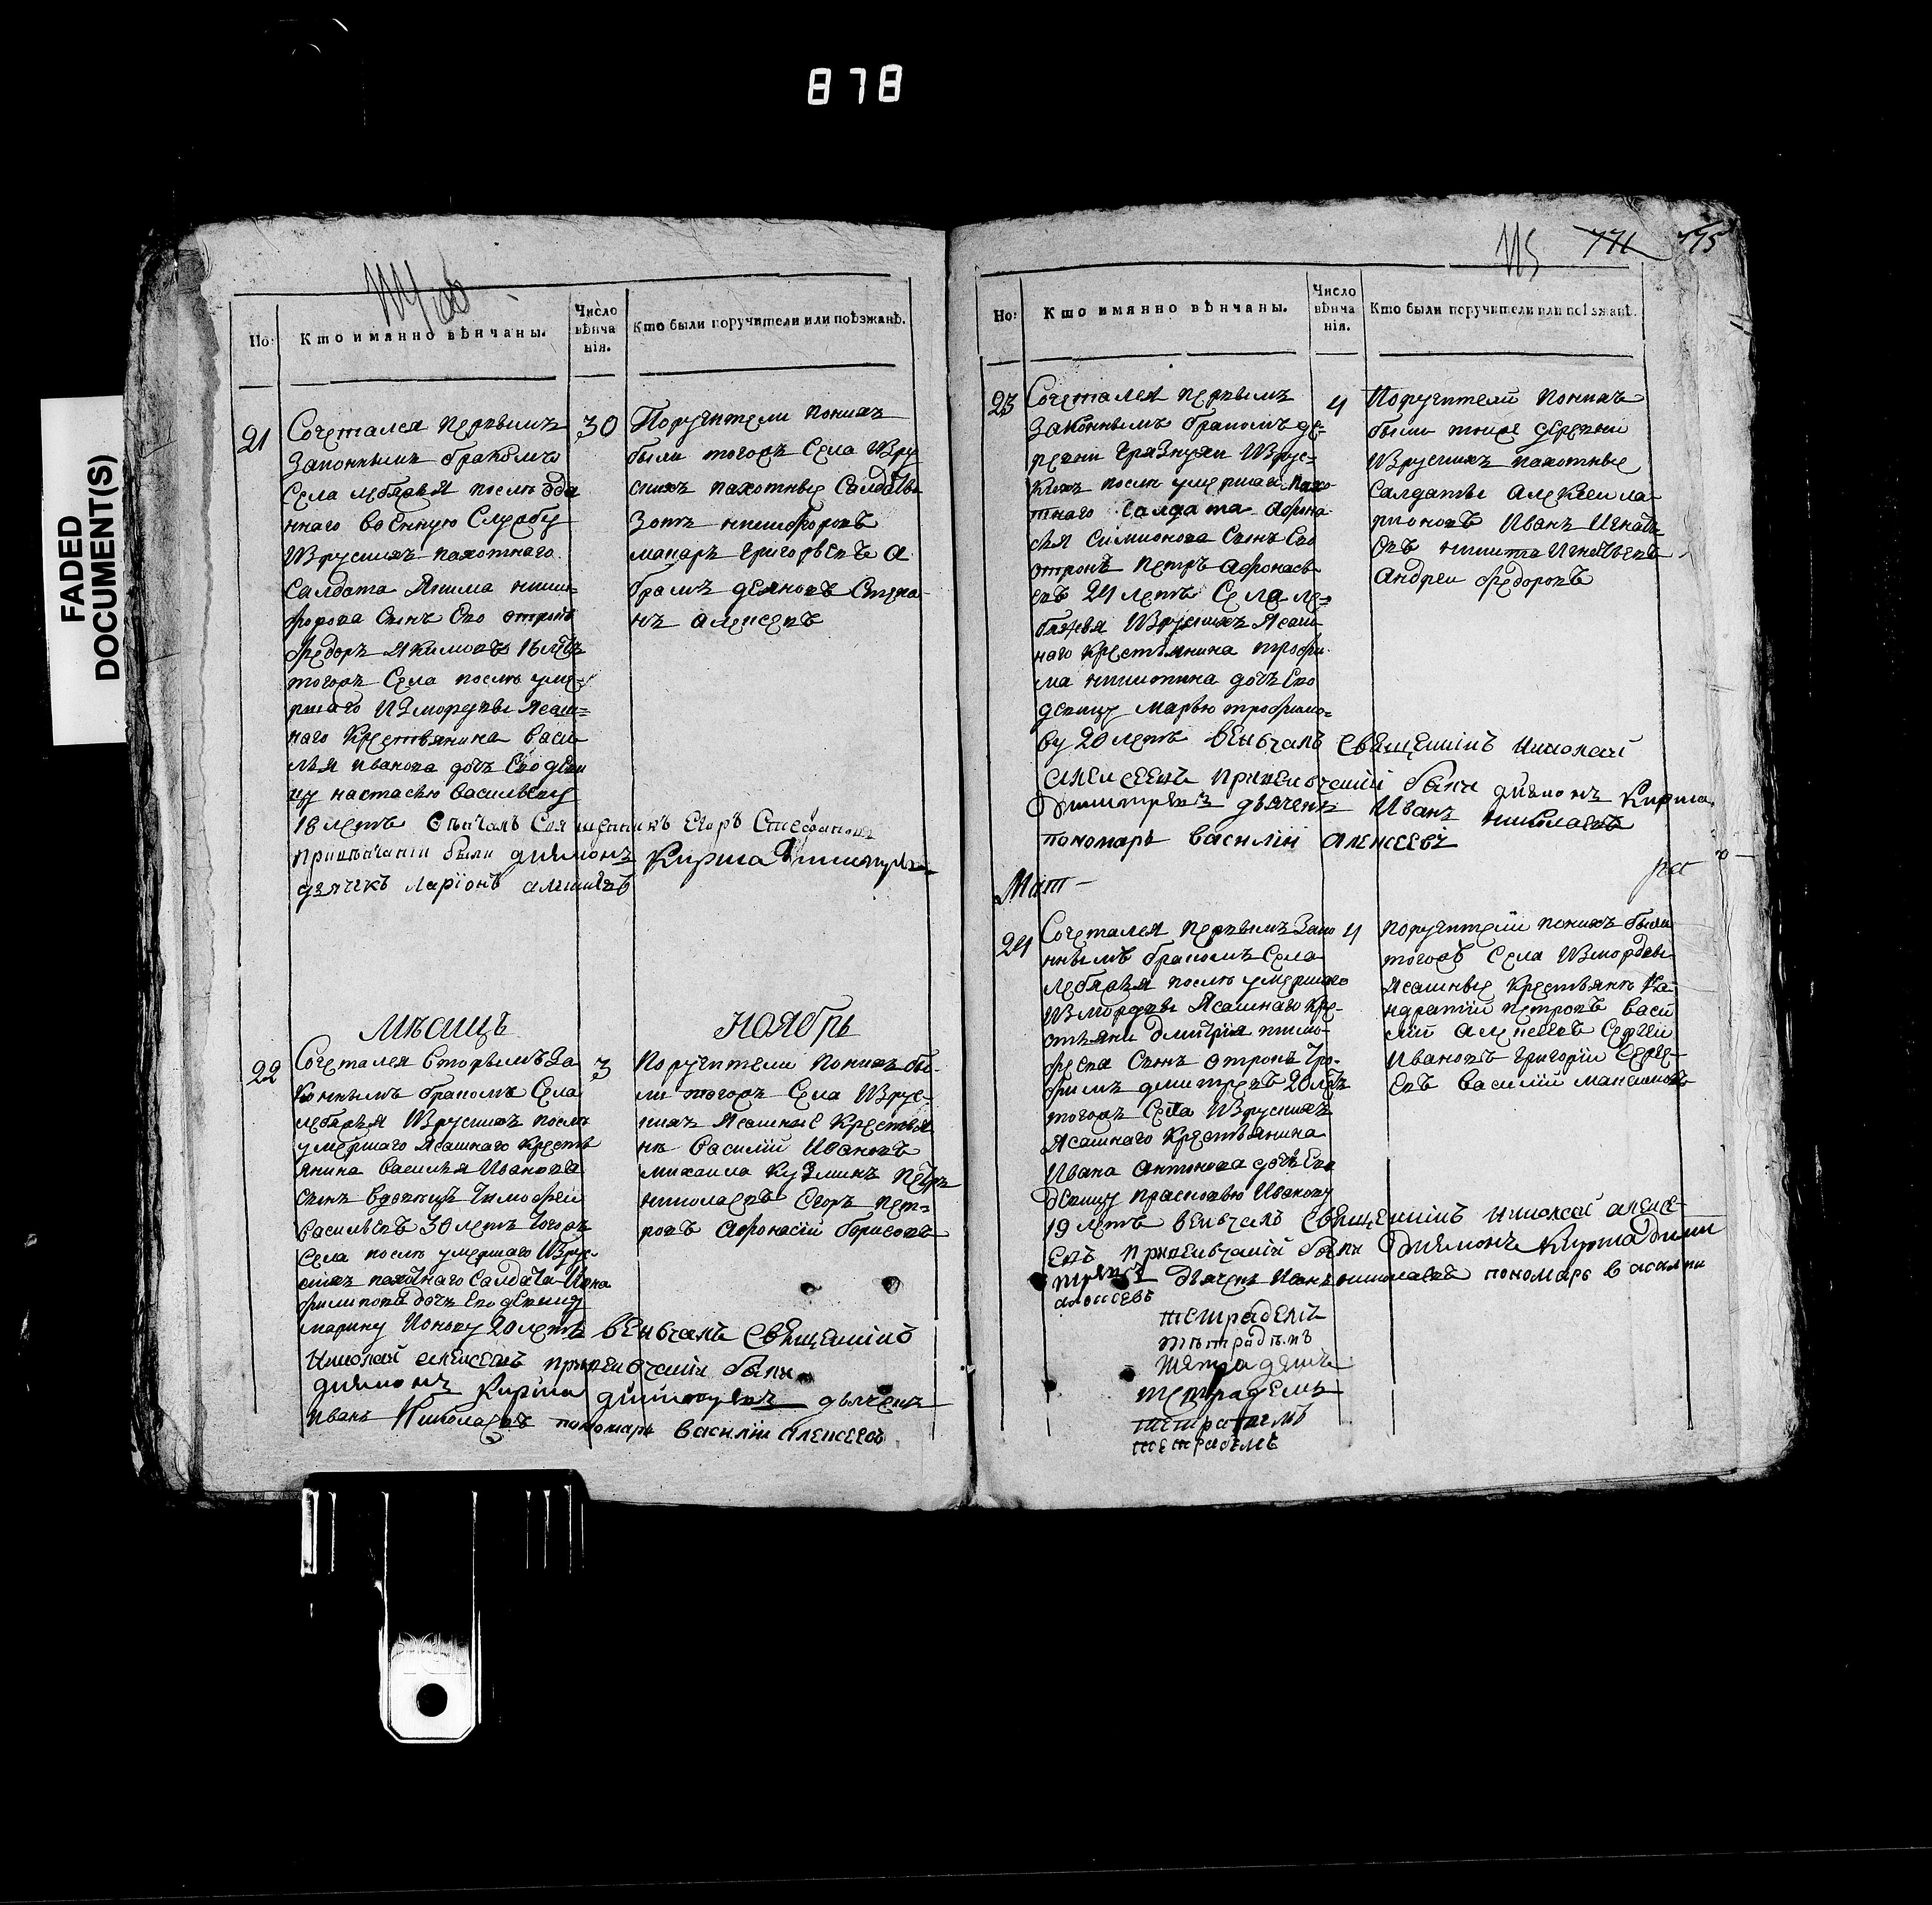 878
FADED
DOCUMENT(S)
114 об
Но:
Кто имянно вѣнчаны.
Число
вѣнча
нія.
Кто были поручители или поѣзжанѣ.
21
Сочетался первымъ
Законнымъ бракомъ
Села лебяжья послѣ отда
ннаго воЕнную Службу
Изрускихъ пахотнаго
Салдата Якима ники-
форова Сынъ Его отрокъ
федоръ Якимовъ 18 летъ
тогожъ Села послѣ уме-
ршаго Измордвы Ясаш-
наго Крестьянина васи
лья иванова дочь Его деви
цу настасью васильеву
18 летъ вѣнчалъ Священникъ Егоръ Стефановъ
привѣнчании были дияконъ Кирила Димитрев
дьячекъ ларионъ
30
Поручители поних
были тогожъ Села Изру
скихъ пахотные Салдаты
Зотъ никифоровъ
макаръ григорьевъ а
брамъ демновъ Степа-
нъ алексевъ
Мѣсяцъ
Ноябрь
22
Сочетался вторымъ За
коннымъ бракомъ Села
лебяжья Изрускихъ послѣ
умершаго Ясашнаго Кресть
янина василья Иванова
сынъ вдовецъ тимофеи
васильевъ 30 летъ тогожъ
Села послѣ умершаго Изрус-
кихъ пахотнаго Салдата Иона
филипова дочь Его девицу
марину Ионову 20 летъ вЕнчалъ свЯщЕнникъ
николай алексеевъ привенчании были
диякомъ Кирила димитревъ дьячекъ
иванъ Николаевъ пономарь василии алексеевъ
3
Поручители поних бы-
ли тогожъ Села Изрус-
кихъ Ясашные Крестья
нѣ василий Ивановъ
михаила Кузминъ петръ
николаевъ Егоръ пет-
ровъ афонасий борисовъ
115
771
775
Но:
Кто имянно вѣнчаны.
Число
вѣнча
нія.
Кто были поручители или поѣзжанѣ.
23
Сочетался первымъ
Законнымъ бракомъ де-
ревни грязнухи Изрус-
кихъ послѣ умершаго пахо-
тнаго Салдата афона-
сья Симионова Сынъ Его
отрокъ петръ афонасье
въ 24 летъ Села ле-
бяжья Изрускихъ Ясаш
наго Крестьянина трофи
ма никитина дочь Его
девицу марью трофимо-
ву 20 летъ вЕнчалъ свЯщЕнникъ николай
алексеевъ привенчании были диякомъ Кирила
Димитревъ дьячекъ Иванъ николаевъ
пономарь василии алексеевъ
4
Поручители поних
были тоиже деревни
Изрускихъ пахотные
Салдаты алексеи ла-
рионовъ Иванъ Игнать
евъ никита Игнатьевъ
андреи федоровъ
24
Сочетался первымъ Зако
ннымъ бракомъ Села
лебяжья послѣ умершаго
Измордвы Ясашнаго Кре-
стьяни димитрия тимо-
феева Сынъ отрокъ тро-
фимъ димитревъ 20 летъ
тогожъ Села Изрускихъ
Ясашнаго Крестьянина
Ивана антонова дочь Его
девицу прасковью Иванову
19 летъ вЕнчалъ свЯщЕнникъ николай алексе-
евъ привенчании были диякомъ Кирила дими
тревъ дьячекъ Иванъ николаевъ пономарь василии
алексеевъ
4
поручители поних были
тогожъ Села Измордвы
Ясашные Крестьянѣ Ка-
ндратии петровъ васи
лий алексеевъ Сергеи
Ивановъ григории Серге-
евъ василий максимовъ